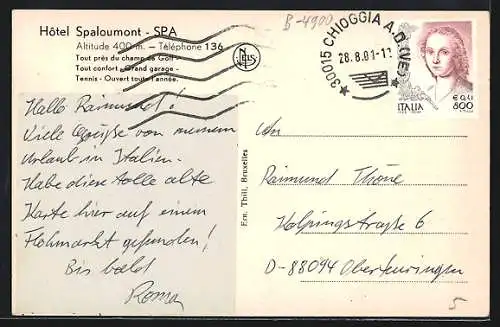 Hôtel Spaloumont - SPA
Altitude 400 m. — Téléphone 136
Tout près du champ de Golf
Tout confort - Grand garage -
Tennis - Ouvert toute l'année.
B-4900
30015 CHIOGGIA A.D. (VE)
28.8.01-1
ITALIA
€ 0,41
800
Hallo Raimund!
Viele Grüße von meinem
Urlaub in Italien.
Habe diese tolle alte
Karte hier auf einem
Flohmarkt gefunden!
Bis bald
Roma
Ern. Thill, Bruxelles
An
Raimund Thöne
Kolpingstraße 6
D-88094 Oberteuringen
5